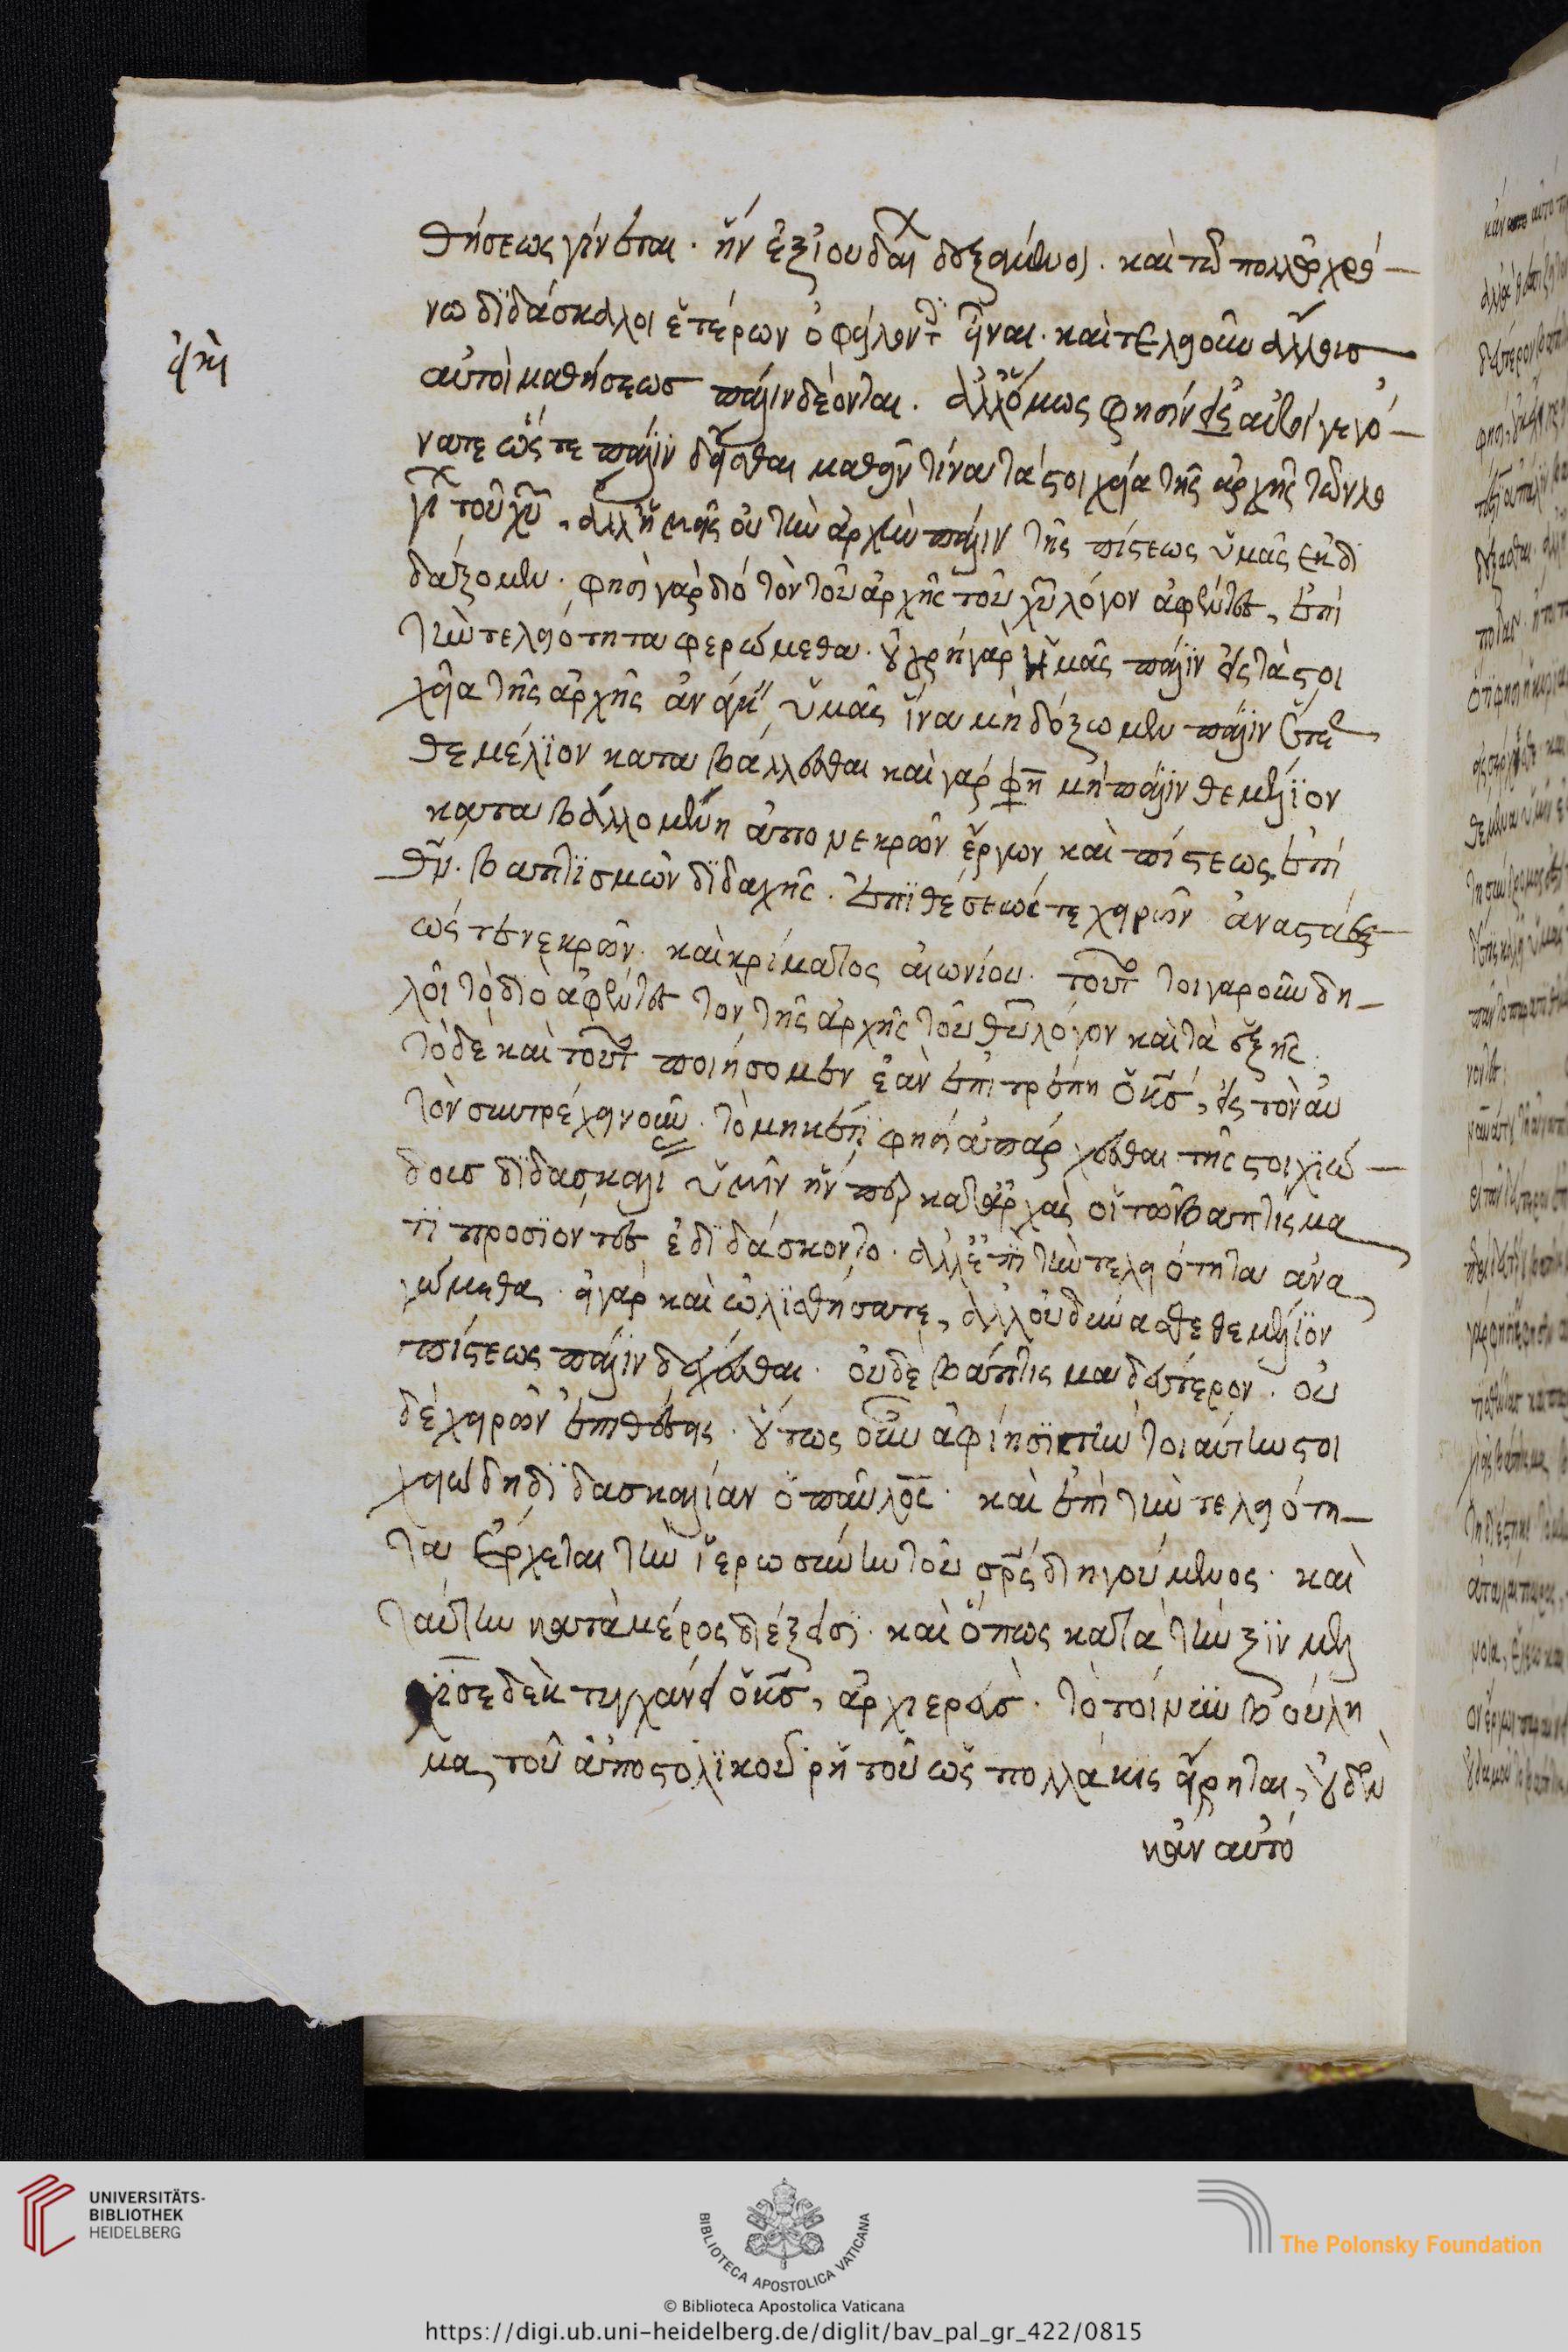 θήσεως γίνεται. ἣν ἐξ ἰουδαι δεξάμενοι. καὶ τῶ πολλῶ χρό-
νω διδάσκαλοι ἑτέρων ὀφείλοντ εἶναι. καὶ τελείου ἀλήθεισ
αὐτοὶ μαθήσεωσ πάλιν δέονται. ἀλλ' ὅμως φησὶν εἰ ἐξ αὐτοὶ γεγό-
νατε ὥστε πάλιν δεῖσθαι μαθεῖν τίνα τὰ στοιχεῖα τῆς ἀρχῆς τῶν λο
γι τοῦ χυ, ἀλλ' ἡμεῖς οὐ τὴν ἀρχὴν πάλιν τῆς πίστεως ὑμᾶς ἐκδι
δάξομεν. φησὶ γὰρ διὸ τὸν τοῦ ἀρχῆς τοῦ χυ λόγον ἀφέντες, ἐπὶ
τὴν τελειότητα φερώμεθα. οὐ χρὴ γὰρ ὑμᾶς πάλιν εἰς τὰ στοι
χεῖα τῆς ἀρχῆς ἀν ὑμᾶς ἵνα μὴ δόξωμεν πάλιν
θεμέλιον καταβάλλεσθαι καὶ γάρ φη μὴ πάλιν θεμέλιον
καταβάλλομεν ἀπο νεκρῶν ἔργων καὶ πίστεως ἐπὶ
θν. βαπτισμῶν διδαχῆς. ἐπιθέσεώς τε χειρῶν ἀναστάσε-
ώς τε νεκρῶν. καὶ κρίματος αἰωνίου. τοῦτ τοιγαροῦν δη-
λοῖ τὸ διὸ ἀφέντες τὸν τῆς ἀρχῆς τοῦ θυ λόγον καὶ τὰ ἑξῆς.
τὸ δὲ καὶ τοῦτ ποιήσομεν ἐὰν ἐπιτρέπη ὁ κσ, εἰς τὸν αὐ
τὸν συντρέχει νοῦν. τὸ μηκέτι φησὶ ἀπάρχεσθαι τῆς στοιχιώ-
δουσ διδασκαλι ὑμῖν ἥν περ κατ' ἀρχὰς οἱ τῶν βαπτίσμα
τι προσϊόντες ἐδιδάσκοντο. ἀλλ' ἐπὶ τὴν τελειότητα ἀνα
γώμεθα. εἰ γὰρ καὶ ὠλισθήσατε, ἀλλ' οὐ δύνασθε θεμέλιον
πίστεως πάλιν δέχεσθαι. οὐδὲ βάπτισμα δεύτερον. οὐ
δὲ χειρῶν ἐπιθέσεις. οὕτως οὖν ἀφίησι τὴν τοιαύτην στοι
χειώδη διδασκαλίαν ὁ παῦλος. καὶ ἐπὶ τὴν τελειότη-
τα ἔρχεται τὴν ἱερωσύνην τοῦ σρς διηγούμενος. καὶ
ταύτην κατὰ μέρος διέξεισι. καὶ ὅπως κατὰ τὴν ξιν μελ
χισεδὲκ τυγχάνει ὁ κσ, ἀρχιερεύσ. τὸ τοίνυν βούλη
μα τοῦ ἀποστολικοῦ ῥητοῦ ὡς πολλάκις εἴρηται, οὐδὲν
κἂν αὐτό
UNIVERSITÄTS-
BIBLIOTHEK
HEIDELBERG
BIBLIOTECA APOSTOLICA VATICANA
The Polonsky Foundation
© Biblioteca Apostolica Vaticana
https://digi.ub.uni-heidelberg.de/diglit/bav_pal_gr_422/0815